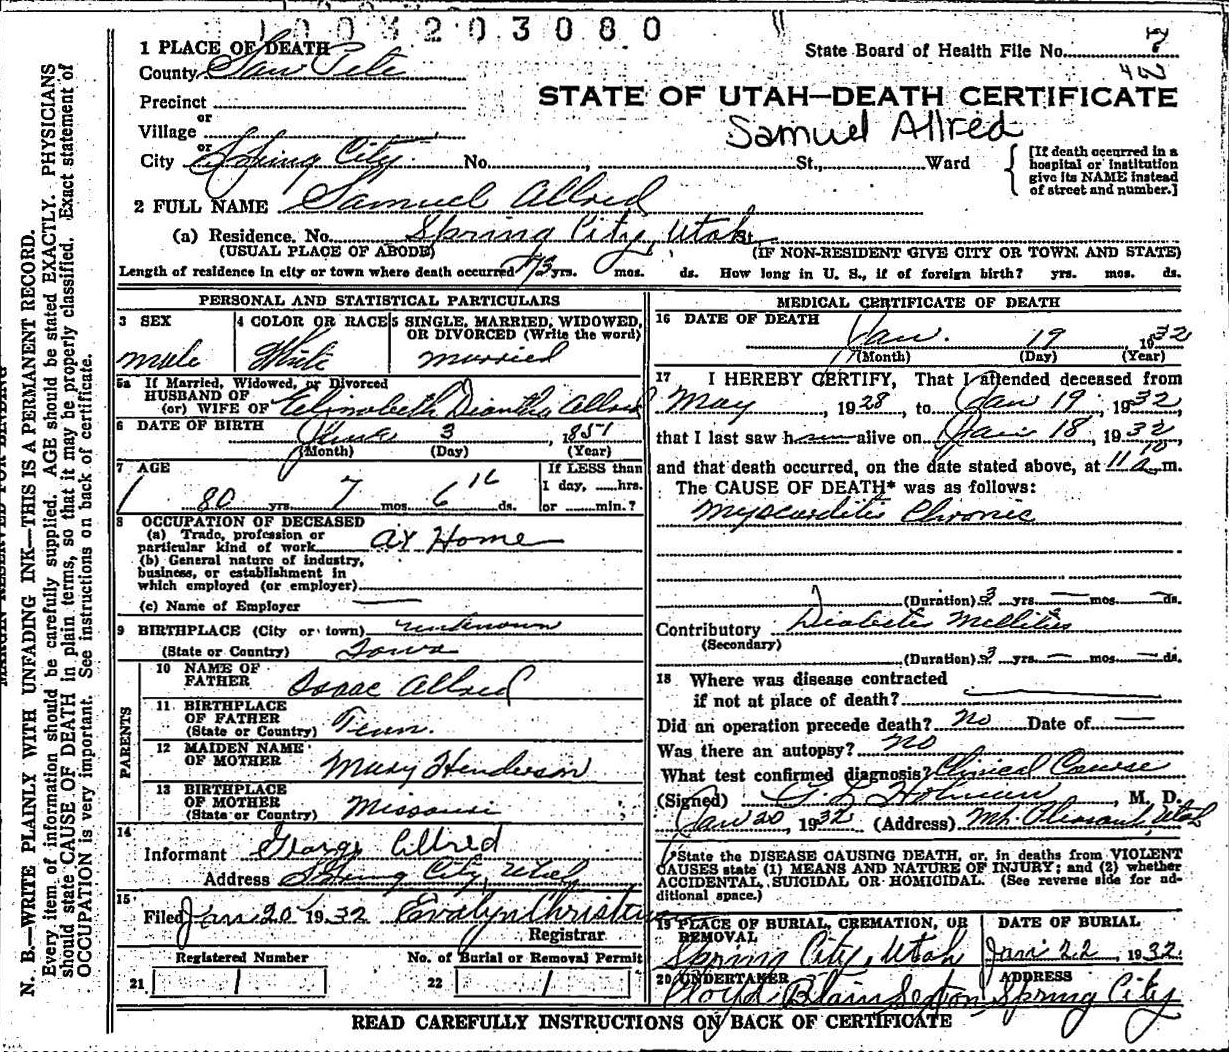 1003203080
1 PLACE OF DEATH
State Board of Health File No. 7
County San Pete
4W
Precinct
or
STATE OF UTAH—DEATH CERTIFICATE
Village
Samuel Allred
or
City Spring City No. , St., Ward
[If death occurred in a
hospital or institution
give its NAME instead
of street and number.]
2 FULL NAME Samuel Allred
(a) Residence. No. Spring City, Utah St.
(USUAL PLACE OF ABODE) (IF NON-RESIDENT GIVE CITY OR TOWN AND STATE)
Length of residence in city or town where death occurred 73 yrs. mos. ds. How long in U. S., if of foreign birth? yrs. mos. ds.
PERSONAL AND STATISTICAL PARTICULARS
3 SEX
male
4 COLOR OR RACE
White
5 SINGLE, MARRIED, WIDOWED,
OR DIVORCED (Write the word)
married
5a If Married, Widowed, or Divorced
HUSBAND OF
(or) WIFE OF Elizabeth Diantha Allred
6 DATE OF BIRTH June 3, 1851
(Month) (Day) (Year)
7 AGE
80 yrs. 7 mos. 6 16 ds.
If LESS than
1 day, ......hrs.
or ......min.?
8 OCCUPATION OF DECEASED
(a) Trade, profession or
particular kind of work At Home
(b) General nature of industry,
business, or establishment in
which employed (or employer)
(c) Name of Employer —
9 BIRTHPLACE (City or town) unknown
(State or Country) Iowa
PARENTS
10 NAME OF
FATHER Isaac Allred
11 BIRTHPLACE
OF FATHER
(State or Country) Tenn.
12 MAIDEN NAME
OF MOTHER Mary Henderson
13 BIRTHPLACE
OF MOTHER
(State or Country) Missouri
14
Informant George Allred
Address Spring City, Utah
15
Filed Jan 20 1932 Evalyn Christensen
Registrar
Registered Number
21 1
No. of Burial or Removal Permit
22 1
MEDICAL CERTIFICATE OF DEATH
16 DATE OF DEATH
Jan. 19 1932
(Month) (Day) (Year)
17 I HEREBY CERTIFY, That I attended deceased from
May, 1928, to Jan 19, 1932,
that I last saw h alive on Jan 18, 1932,
and that death occurred, on the date stated above, at 11 10 a.m.
The CAUSE OF DEATH* was as follows:
Myocarditis Chronic
(Duration) 3 yrs. — mos. — ds.
Contributory Diabetis Mellitus
(Secondary)
(Duration) 3 yrs. — mos. — ds.
18 Where was disease contracted
if not at place of death?
Did an operation precede death? No Date of —
Was there an autopsy? no
What test confirmed diagnosis? Clinical Course
(Signed) , M. D.
Jan 20, 1932 (Address) Mt. Pleasant, Utah
*State the DISEASE CAUSING DEATH, or, in deaths from VIOLENT
CAUSES state (1) MEANS AND NATURE OF INJURY; and (2) whether
ACCIDENTAL, SUICIDAL OR HOMICIDAL. (See reverse side for ad-
ditional space.)
19 PLACE OF BURIAL, CREMATION, OR
REMOVAL
Spring City, Utah
DATE OF BURIAL
Jan 22 1932
20 UNDERTAKER
Lloyd Blain Sexton
ADDRESS
Spring City
READ CAREFULLY INSTRUCTIONS ON BACK OF CERTIFICATE
MARGIN RESERVED FOR BINDING
N. B.—WRITE PLAINLY WITH UNFADING INK—THIS IS A PERMANENT RECORD.
Every item of information should be carefully supplied. AGE should be stated EXACTLY. PHYSICIANS
should state CAUSE OF DEATH in plain terms, so that it may be properly classified. Exact statement of
OCCUPATION is very important. See instructions on back of certificate.